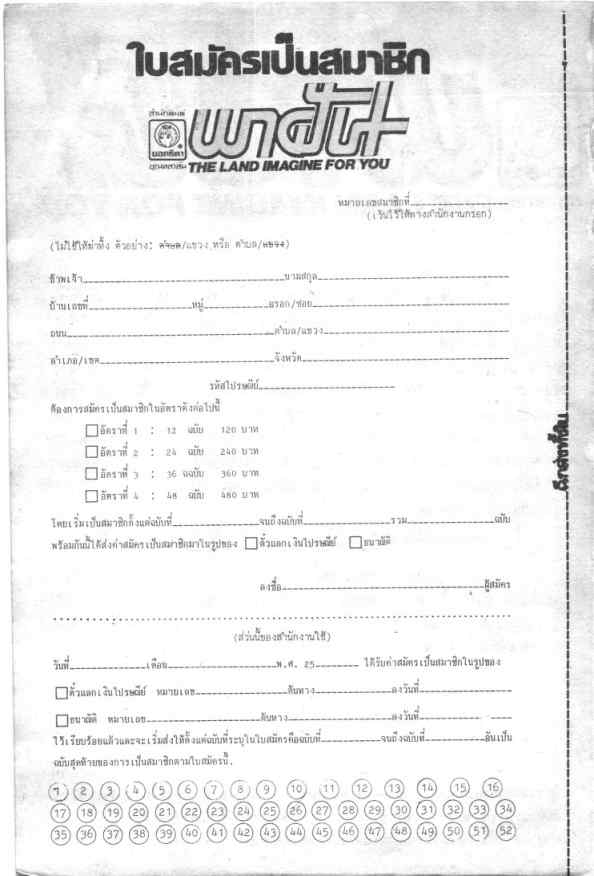 ใบสมัครเป็นสมาชิก
สำนักพิมพ์
พาฝัน
บอกธิดา
THE LAND IMAGINE FOR YOU
หมายเลขสมาชิกที่
(เว้นไว้ให้ทางสำนักงานกรอก)
(ไม่ใช้ให้ฆ่าทิ้ง ตัวอย่าง: ตำบล/แขวง หรือ ตำบล/แขวง)
ข้าพเจ้า นามสกุล
บ้านเลขที่ หมู่ ตรอก/ซอย
ถนน ตำบล/แขวง
อำเภอ/เขต จังหวัด
รหัสไปรษณีย์
ต้องการสมัครเป็นสมาชิกในอัตราดังต่อไปนี้
อัตราที่ 1 : 12 ฉบับ 120 บาท
อัตราที่ 2 : 24 ฉบับ 240 บาท
อัตราที่ 3 : 36 ฉบับ 360 บาท
อัตราที่ 4 : 48 ฉบับ 480 บาท
โดยเริ่มเป็นสมาชิกตั้งแต่ฉบับที่ จนถึงฉบับที่ รวม ฉบับ
พร้อมกันนี้ได้ส่งค่าสมัครเป็นสมาชิกมาในรูปของ ตั๋วแลกเงินไปรษณีย์ ธนาณัติ
ลงชื่อ ผู้สมัคร
(ส่วนนี้ของสำนักงานใช้)
วันที่ เดือน พ.ศ. 25 ได้รับค่าสมัครเป็นสมาชิกในรูปของ
ตั๋วแลกเงินไปรษณีย์ หมายเลข ต้นทาง ลงวันที่
ธนาณัติ หมายเลข ต้นทาง ลงวันที่
ไว้เรียบร้อยแล้วและจะเริ่มส่งให้ตั้งแต่ฉบับที่ระบุในใบสมัครคือฉบับที่ จนถึงฉบับที่ อันเป็น
ฉบับสุดท้ายของการเป็นสมาชิกตามใบสมัครนี้.
1 2 3 4 5 6 7 8 9 10 11 12 13 14 15 16
17 18 19 20 21 22 23 24 25 26 27 28 29 30 31 32 33 34
35 36 37 38 39 40 41 42 43 44 45 46 47 48 49 50 51 52
ฉีกส่งที่นี่